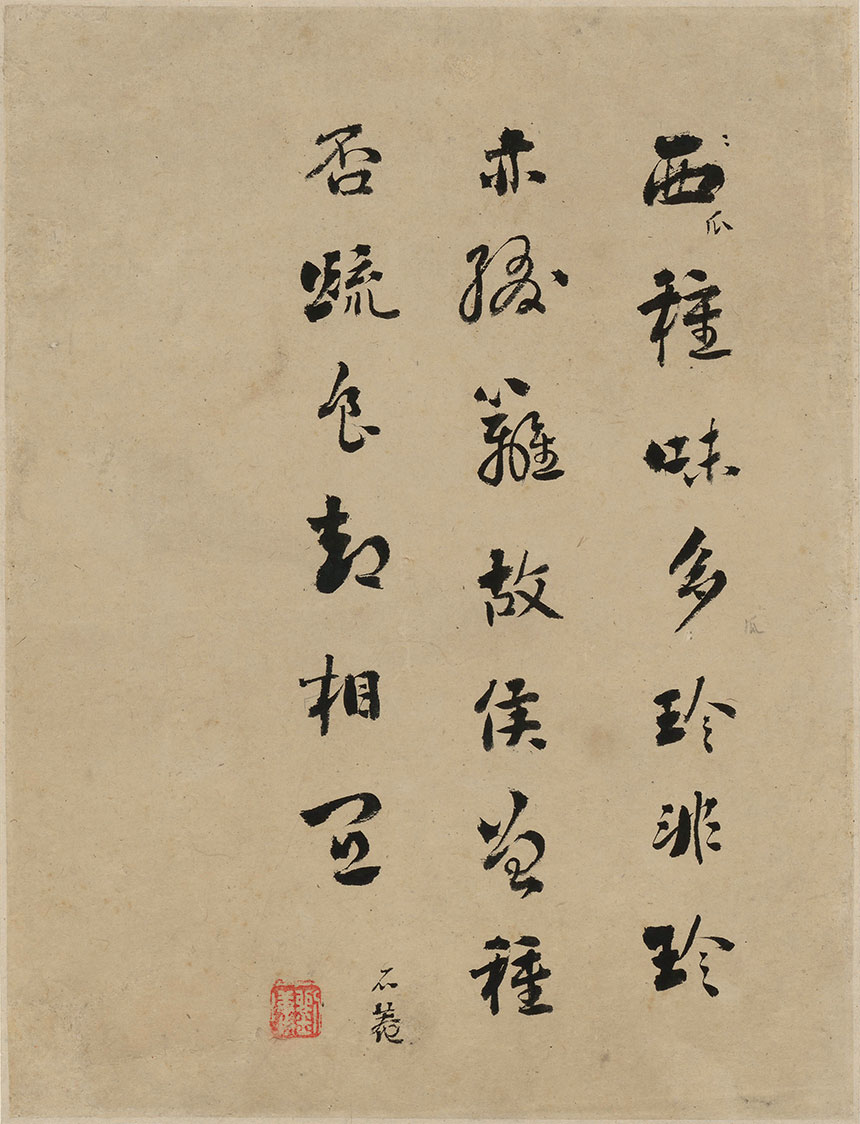 西瓜種味多珍非珍
亦綴籬故侯曾種
否疏食却相宜
石菴